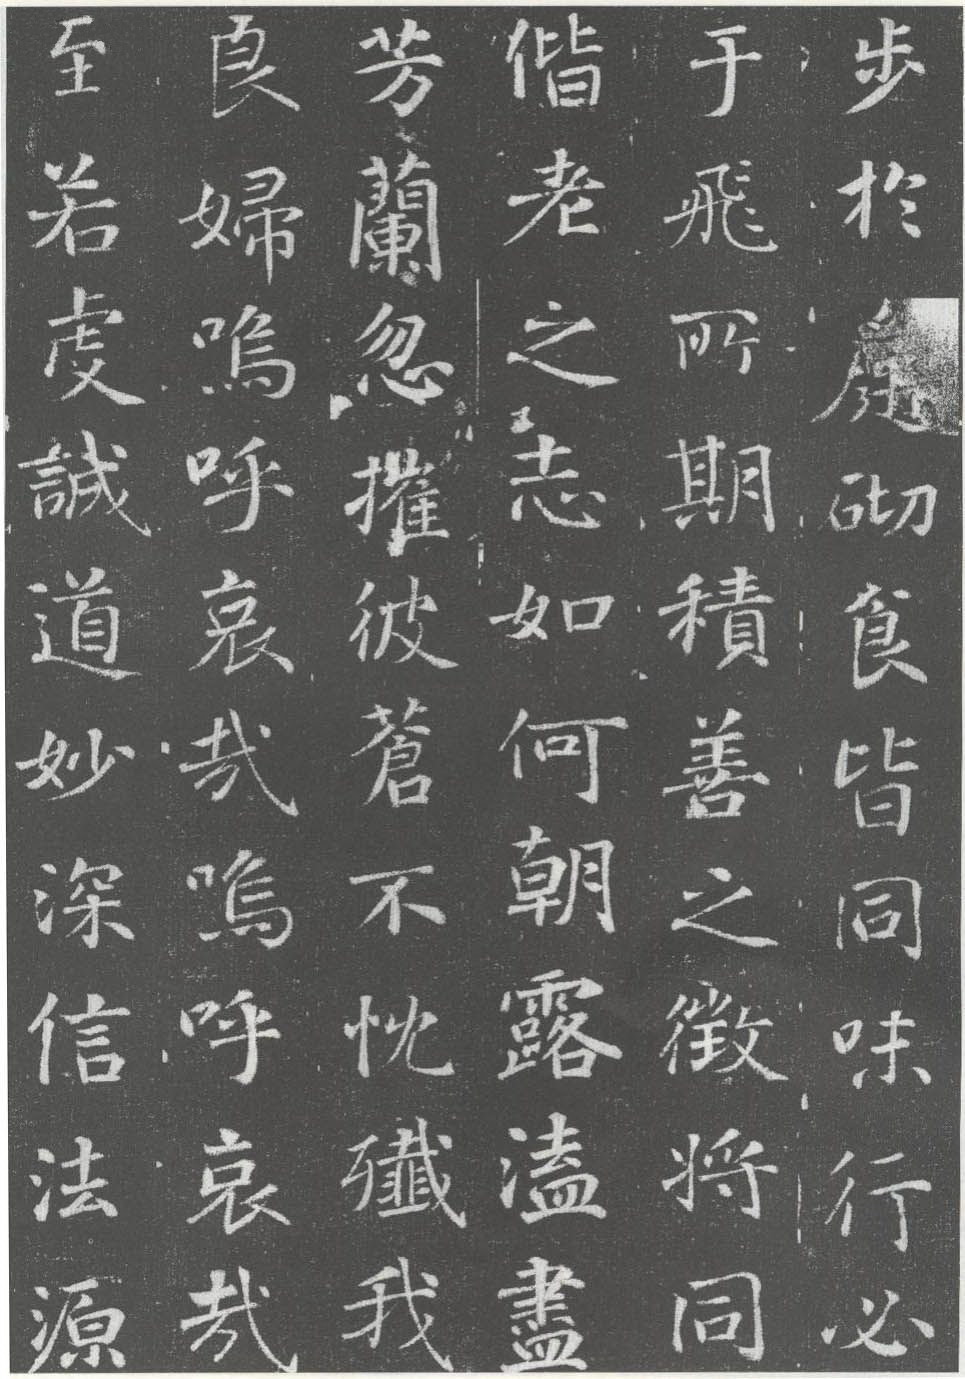 步於庭砌食皆同味行必
于飛所期積善之徵将同
偕老之志如何朝露溘盡
芳蘭忽摧彼蒼不忱殲我
良婦嗚呼哀哉嗚呼哀哉
至若虔誠道妙深信法源